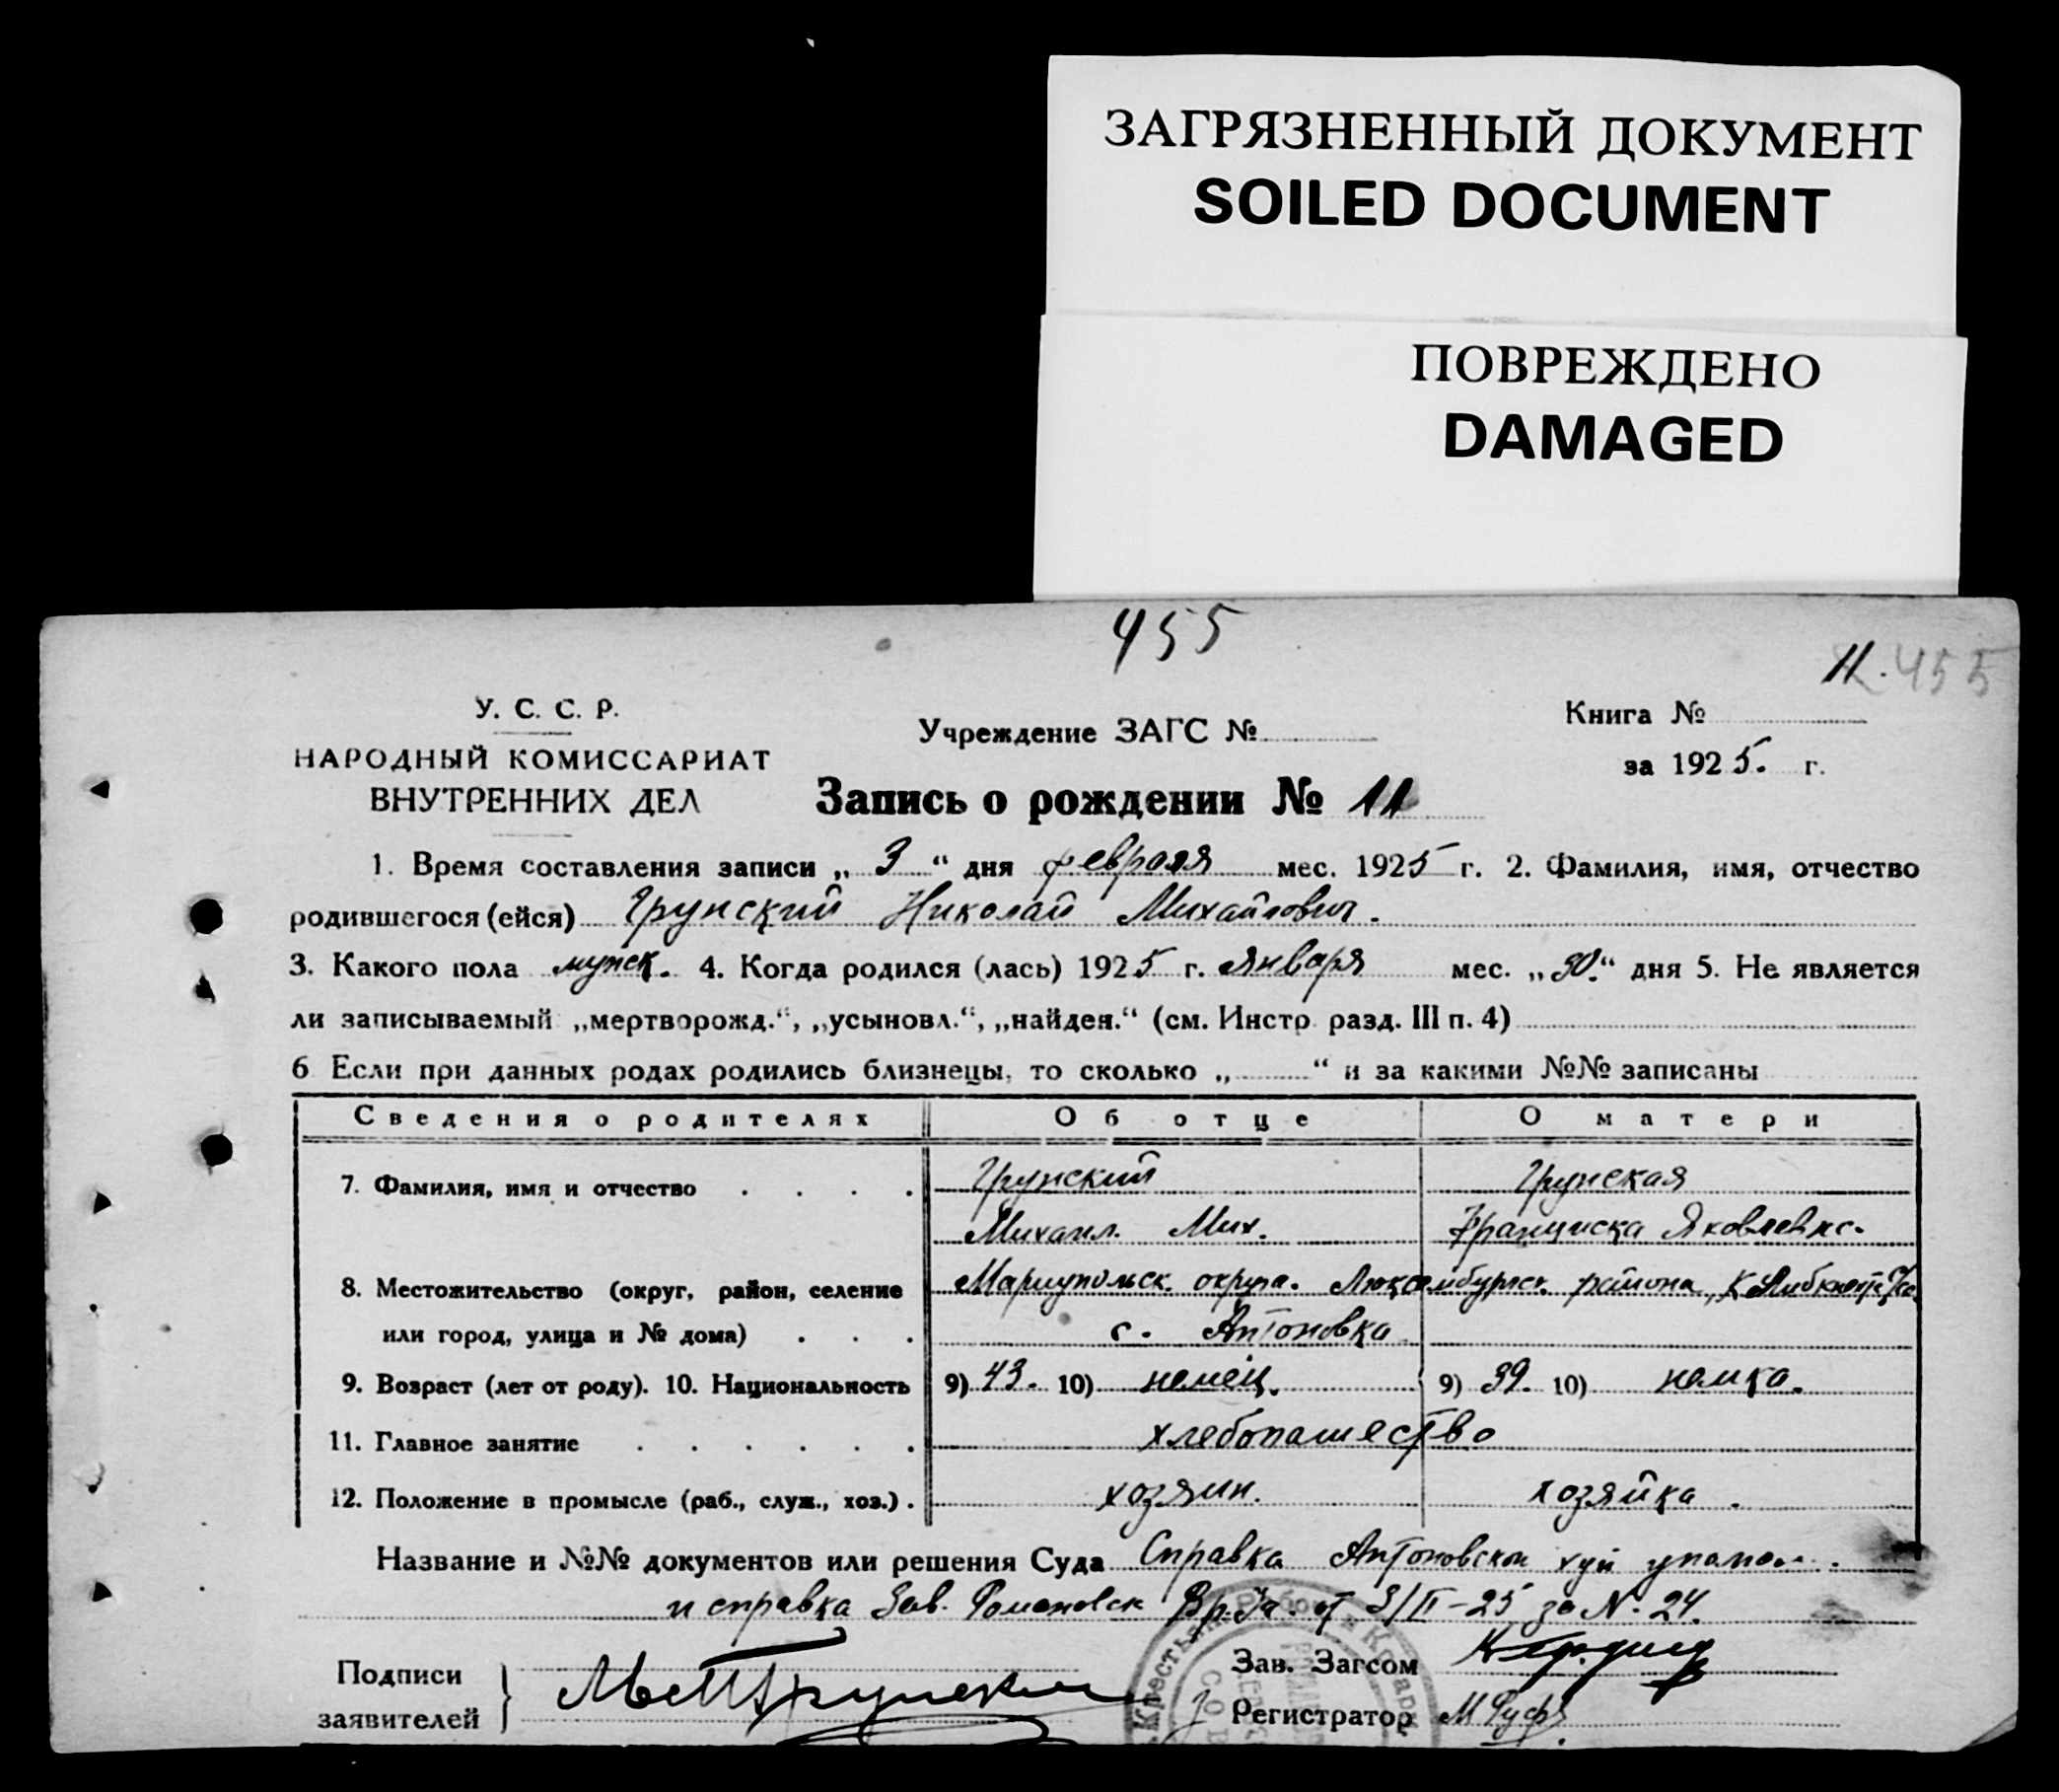 ЗАГРЯЗНЕННЫЙ ДОКУМЕНТ
SOILED DOCUMENT
ПОВРЕЖДЕНО
DAMAGED
455
11. 455
У. С. С. Р.
НАРОДНЫЙ КОМИССАРИАТ
ВНУТРЕННИХ ДЕЛ
Учреждение ЗАГС №
Книга №
за 1925. г.
Запись о рождении № 11
1. Время составления записи „ 3 “ дня февраля мес. 1925 г. 2. Фамилия, имя, отчество
родившегося (ейся) Грунский Николай Михайлович.
3. Какого пола мужск. 4. Когда родился (лась) 1925 г. января мес. „30.“ дня 5. Не является
ли записываемый „мертворожд.“, „усыновл.“, „найден.“ (см. Инстр. разд. III п. 4)
6 Если при данных родах родились близнецы, то сколько „ “ и за какими №№ записаны
Сведения о родителях Об отце О матери
7. Фамилия, имя и отчество Грунский Грунская
Михаил. Мих. Франциска Яковлевнс.
8. Местожительство (округ, район, селение Мариупольск. округа. Люксембургск. района,
или город, улица и № дома) с. Антоновка
9. Возраст (лет от роду). 10. Национальность 9) 43. 10) немец. 9) 39. 10) немка.
11. Главное занятие хлебопашество
12. Положение в промысле (раб., служ., хоз.) хозяин. хозяйка.
Название и №№ документов или решения Суда Справка Антоновской
и справка Зав. Романовск от 3/II-25 за № 24.
Подписи
заявителей
Зав. Загсом
Регистратор